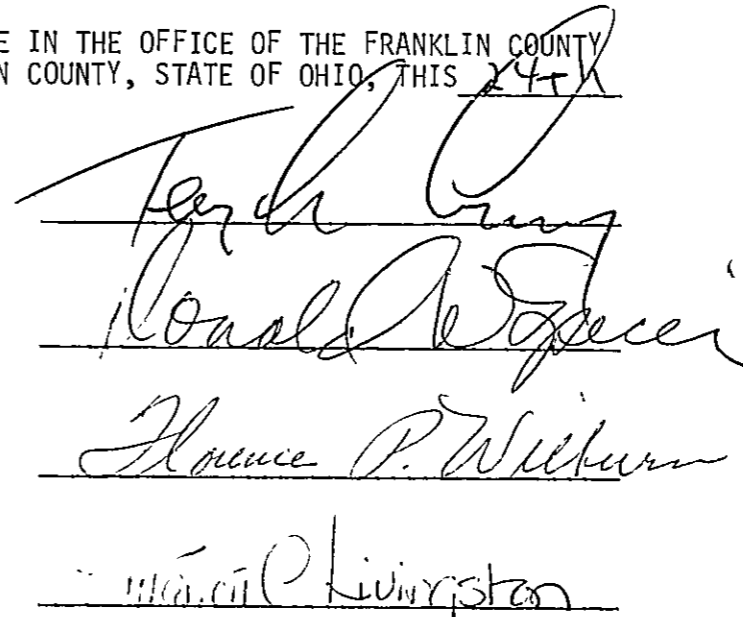 E IN THE OFFICE OF THE FRANKLIN COUNTY
N COUNTY, STATE OF OHIO, THIS 24th
Ronald
Florence P. Wilburn
Livingston